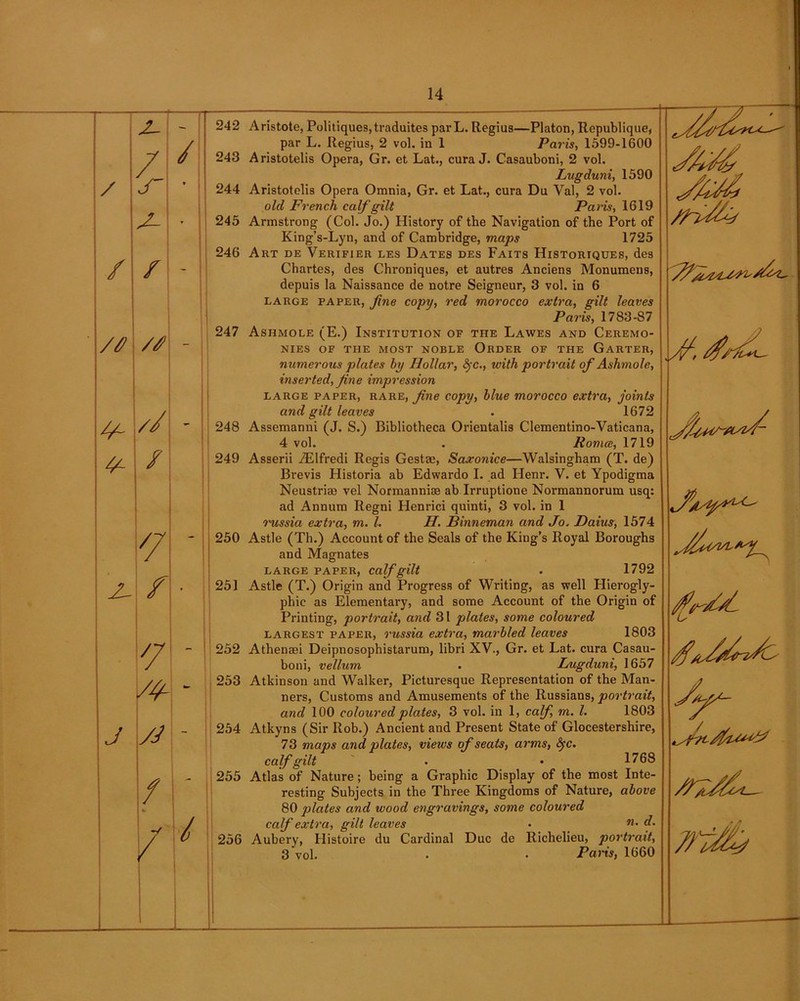 14
242 Aristote, Politiques, traduites par L. Regius—Platon, Republique,
par L. Regius, 2 vol. in 1 Paris, 1599-1600
243 Aristotelis Opera, Gr. et Lat., cura J. Casauboni, 2 vol.
Lugduni, 1590
244 Aristotelis Opera Omnia, Gr. et Lat., cura Du Val, 2 vol.
old French calf gilt Paris, 1619
245 Armstrong (Col. Jo.) History of the Navigation of the Port of
King's-Lyn, and of Cambridge, maps 1725
246 Art de Verifier les Dates des Faits Historiques, des
Chartes, des Chroniques, et autres Anciens Monumens,
depuis la Naissance de notre Seigneur, 3 vol. in 6
large paper, fine copy, red morocco extra, gilt leaves
Paris, 1783-87
247 Ashmole (E.) Institution of the Lawes and Ceremo-
nies of the most noble Order of the Garter,
numerous plates by Hollar, &c., with portrait of Ashmole,
inserted, fine impression
large paper, rare, fine copy, blue morocco extra, joints
and gilt leaves . 1672
248 Assemanni (J. S.) Bibliotheca Orientalis Clementino-Vaticana,
4 vol. . Romæ, 1719
249 Asserii Ælfredi Regis Gestæ, Saxonice—Walsingham (T. de)
Brevis Historia ab Edwardo I. ad Henr. V. et Ypodigma
Neustriæ vel Normanniæ ab Irruptione Normannorum usq:
ad Annum Regni Henrici quinti, 3 vol. in 1
russia extra, m. l. H. Binneman and Jo. Daius, 1574
250 Astle (Th.) Account of the Seals of the King's Royal Boroughs
and Magnates
large paper, calf gilt . 1792
251 Astle (T.) Origin and Progress of Writing, as well Hierogly-
phic as Elementary, and some Account of the Origin of
Printing, portrait, and 31 plates, some coloured
largest paper, russia extra, marbled leaves 1803
252 Athenæi Deipnosophistarum, libri XV., Gr. et Lat. cura Casau-
boni, vellum . Lugduni, 1657
253 Atkinson and Walker, Picturesque Representation of the Man-
ners, Customs and Amusements of the Russians, portrait,
and 100 coloured plates, 3 vol. in 1, calf, m. l. 1803
254 Atkyns (Sir Rob.) Ancient and Present State of Glocestershire,
73 maps and plates, views of seats, arms, &c.
calf gilt . . 1768
255 Atlas of Nature; being a Graphic Display of the most Inte-
resting Subjects in the Three Kingdoms of Nature, above
80 plates and wood engravings, some coloured
calf extra, gilt leaves . n. d.
256 Aubery, Histoire du Cardinal Duc de Richelieu, portrait,
3 vol. . . Paris, 1660